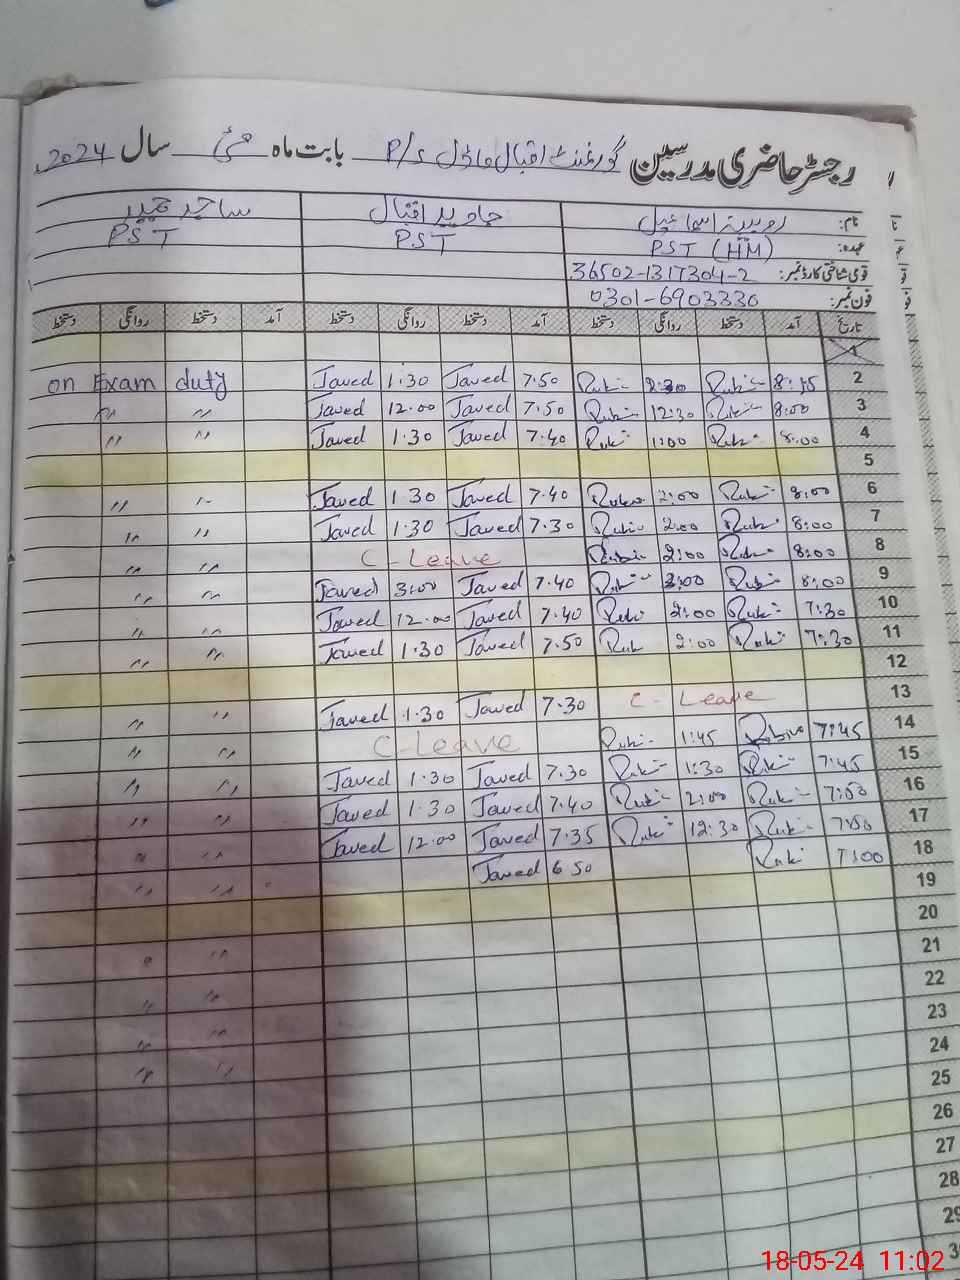 رجسٹر حاضری مدرسین گورنمنٹ اقبال ماڈل P/S بابت ماہ مئی سال 2024
نام: روبینہ اسماعیل جاوید اقبال ساجد حمید
عہدہ: PST (HM) PST PST
قومی شناختی کارڈ نمبر: 36502-1317304-2
فون نمبر: 0301-6903330
تاریخ آمد دستخط روانگی دستخط آمد دستخط روانگی دستخط آمد دستخط روانگی دستخط
1
2 8:15 Rubi 2:30 Rubi 7.50 Javed 1.30 Javed on Exam duty
3 8:00 Rubi 12:30 Rubi 7.50 Javed 12.00 Javed " "
4 8:00 Rubi 1:00 Rubi 7.40 Javed 1.30 Javed " "
5
6 8:00 Rubi 2:00 Rubi 7.40 Javed 1 30 Javed " "
7 8:00 Rubi 2:00 Rubi 7.30 Javed 1.30 Javed " "
8 8:00 Rubi 2:00 Rubi C-Leave " "
9 8:00 Rubi 2:00 Rubi 7.40 Javed 3.00 Javed " "
10 7:30 Rubi 2:00 Rubi 7.40 Javed 12.00 Javed " "
11 7:30 Rubi 2:00 Rubi 7.50 Javed 1.30 Javed " "
12
13 C-Leave 7.30 Javed 1.30 Javed " "
14 7:45 1:45 Rubi C-Leave " "
15 7:45 Rubi 1:30 Rubi 7.30 Javed 1.30 Javed " "
16 7:50 Rubi 2:00 Rubi 7.40 Javed 1.30 Javed " "
17 7:50 Rubi 12:30 Rubi 7.35 Javed 12.00 Javed " "
18 7:00 Rubi 6 50 Javed " "
19
20 " "
21 " "
22 " "
23 " "
24
25
26
27
28
29
18-05-24 11:02